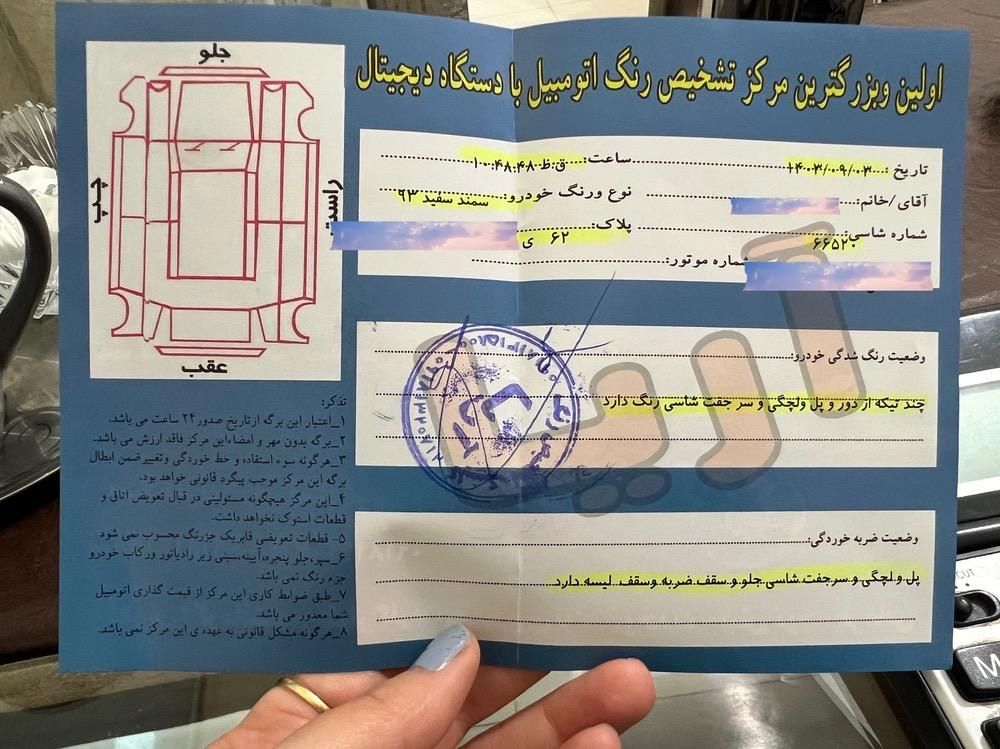 اولین وبزرگترین مرکز تشخیص رنگ اتومبیل با دستگاه دیجیتال
جلو
چپ
راست
عقب
تاریخ : ۱۴۰۳/۰۹/۰۳ ساعت: ۱۰:۴۸:۴۸ ق.ظ
آقای/خانم: نوع ورنگ خودرو: سمند سفید ۹۳
شماره شاسی: ۶۶۵۲۰ پلاک: ۶۲ ی
شماره موتور:
وضعیت رنگ شدگی خودرو:
چند تیکه از دور و پل ولچگی و سر جفت شاسی رنگ دارد
وضعیت ضربه خوردگی:
پل و لچگی و سر جفت شاسی جلو و سقف ضربه وسقف لیسه دارد
آریا
تذکر:
۱_اعتبار این برگه ازتاریخ صدور۲۴ ساعت می باشد.
۲_برگه بدون مهر و امضاءاین مرکز فاقد ارزش می باشد.
۳_هرگونه سوء استفاده و خط خوردگی وتغییرضمن ابطال
برگه این مرکز موجب پیگرد قانونی خواهد بود.
۴_این مرکز هیچگونه مسئولیتی در قبال تعویض اتاق و
قطعات استوک نخواهد داشت.
۵- قطعات تعویضی فابریک جزرنگ محسوب نمی شود
۶_سپر،جلو پنجره،آیینه،سینی زیر رادیاتور ورکاب خودرو
جزء رنگ نمی باشد.
۷_طبق ضوابط کاری این مرکز از قیمت گذاری اتومبیل
شما معذور می باشد.
۸_هرگونه مشکل قانونی به عهده ی این مرکز نمی باشد.